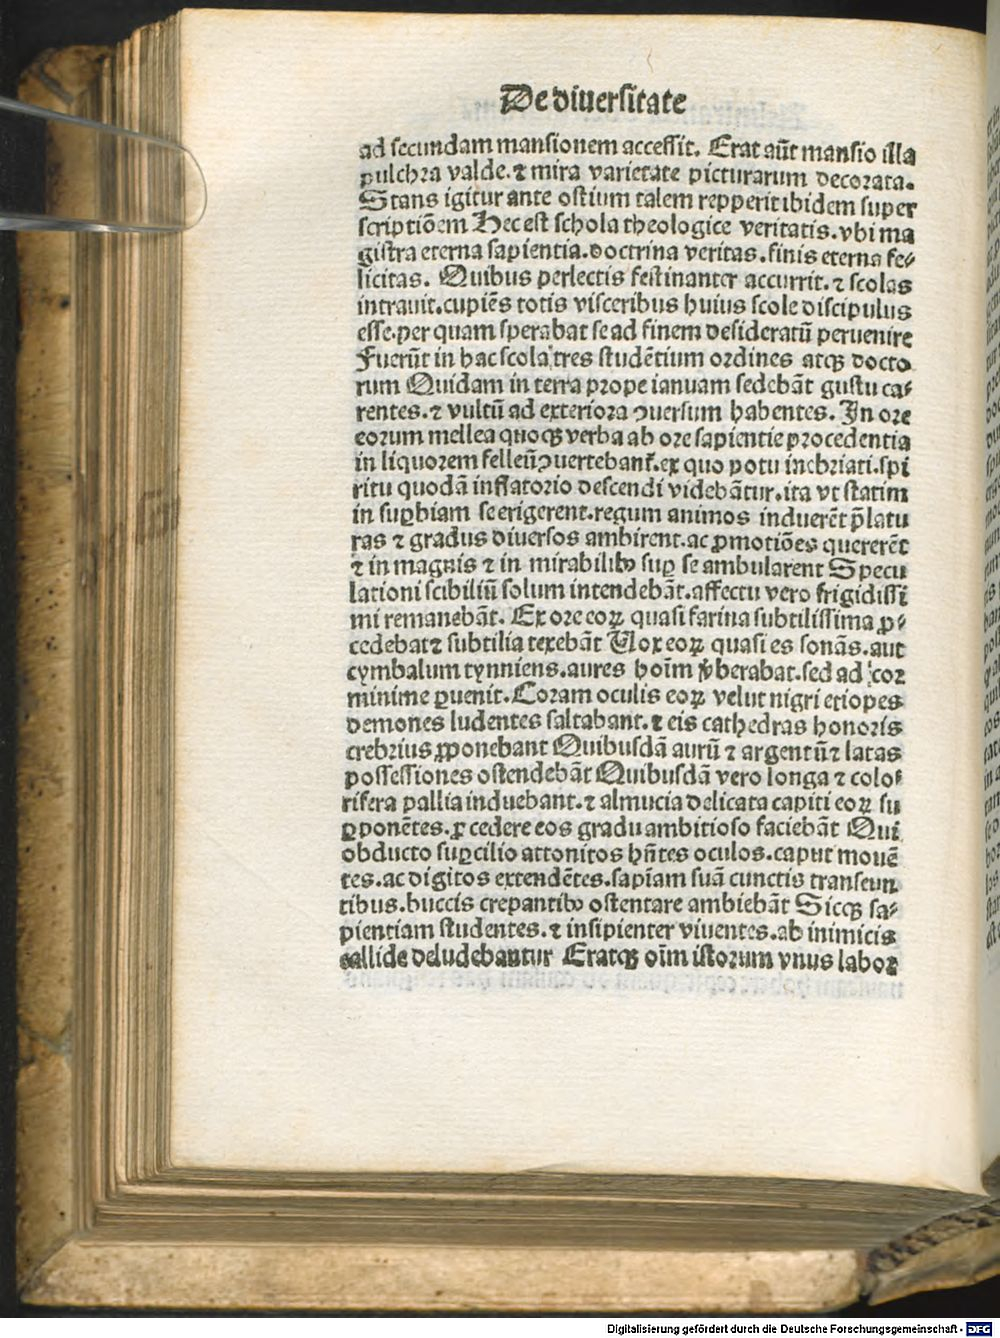 De diuersitate
ad secundam mansionem accessit. Erat aūt mansio illa
pulchra valde. ⁊ mira varietate picturarum decorata.
Stans igitur ante ostium talem repperit ibidem super
scriptiōem Hec est schola theologice veritatis. vbi ma
gistra eterna sapientia. doctrina veritas. finis eterna fe⸗
licitas. Quibus perlectis festinanter accurrit. ⁊ scolas
intrauit. cupiēs totis visceribus huius scole discipulus
esse. per quam sperabat se ad finem desideratū peruenire
Fuerūt in hac scola tres studētium ordines atqꝫ docto
rum Quidam in terra prope ianuam sedebāt gustu ca⸗
rentes. ⁊ vultū ad exteriora ꝯuersum habentes. In ore
eorum mellea quoqꝫ verba ab ore sapientie procedentia
in liquorem felleū ꝯuertebant̄. ex quo potu inebriati. spi
ritu quodā inflatorio descendi videbātur. ita vt statim
in suꝑbiam se erigerent. regum animos induerēt p̄latu
ras ⁊ gradus diuersos ambirent. ac ꝓmotiōes quererēt
⁊ in magnis ⁊ in mirabilibꝰ suꝑ se ambularent Specu
lationi scibiliū solum intendebāt. affectu vero frigidissi
mi remanebāt. Ex ore eoꝝ quasi farina subtilissima ꝓ⸗
cedebat ⁊ subtilia texebāt Uox eoꝝ quasi es sonās. aut
cymbalum tynniens. aures hoīm v̓berabat. sed ad cor
minime ꝑuenit. Coram oculis eoꝝ velut nigri etiopes
demones ludentes saltabant. ⁊ eis cathedras honoris
crebrius ꝓponebant Quibusdā aurū ⁊ argentū ⁊ latas
possessiones ostendebāt Quibusdā vero longa ⁊ colo⸗
rifera pallia induebant. ⁊ almucia delicata capiti eoꝝ su
ꝑponētes. ꝓcedere eos gradu ambitioso faciebāt Qui
obducto suꝑcilio attonitos hn̄tes oculos. caput mouē
tes. ac digitos extendētes. sapīam suā cunctis transeun
tibus. buccis crepantibꝰ ostentare ambiebāt Sicqꝫ sa⸗
pientiam studentes. ⁊ insipienter viuentes. ab inimicis
callide deludebantur Eratqꝫ oīm istorum vnus labor
Digitalisierung gefördert durch die Deutsche Forschungsgemeinschaft - DFG